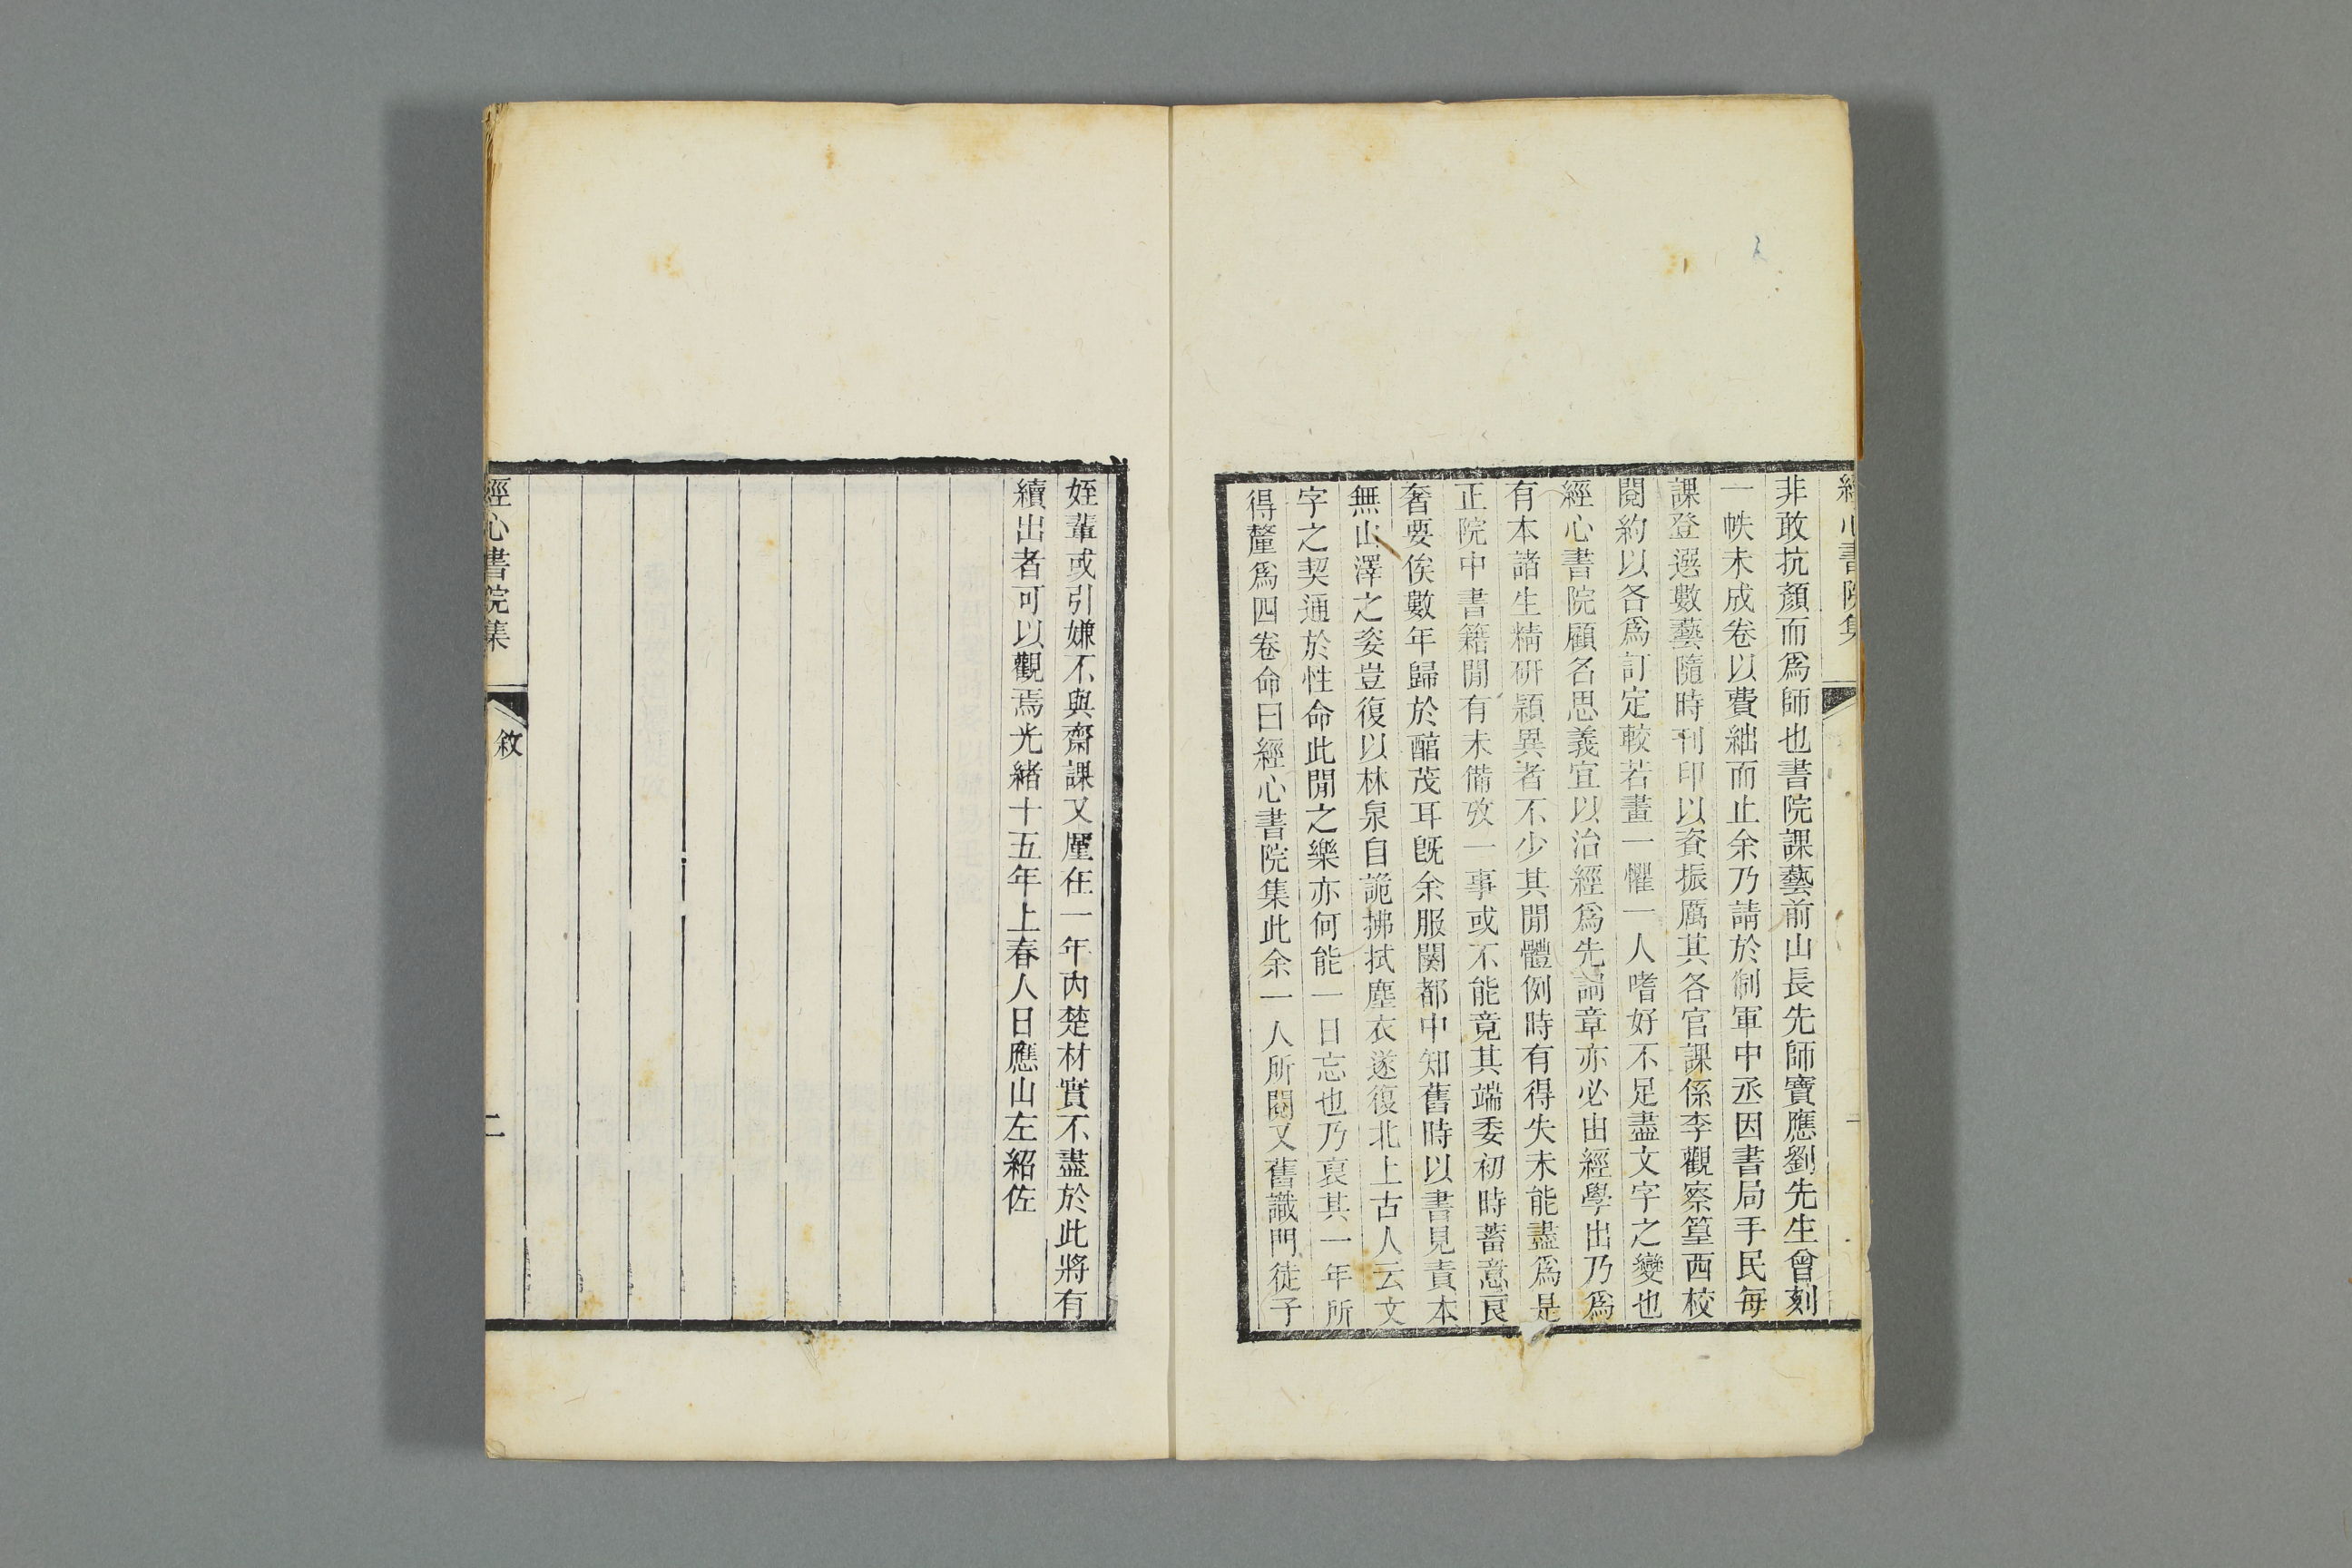 經心書院集
一
非敢抗顏而爲師也書院課藝前山長先師寶應劉先生曾刻
一帙未成卷以費絀而止余乃請於制軍中丞因書局手民每
課登選數藝隨時刊印以資振厲其各官課係李觀察篁西校
閱約以各爲訂定較若畫一懼一人嗜好不足盡文字之變也
經心書院顧名思義宜以治經爲先詞章亦必由經學出乃爲
有本諸生精研穎異者不少其閒體例時有得失未能盡爲是
正院中書籍閒有未備攷一事或不能竟其端委初時蓄意良
奢要俟數年歸於醅茂耳旣余服闋都中知舊時以書見責本
無山澤之姿豈復以林泉自詭拂拭塵衣遂復北上古人云文
字之契通於性命此閒之樂亦何能一日忘也乃裒其一年所
得釐爲四卷命曰經心書院集此余一人所閱又舊識門徒子
姪輩或引嫌不與齋課又厪在一年內楚材實不盡於此將有
續出者可以觀焉光緒十五年上春人日應山左紹佐
經心書院集
敘
二